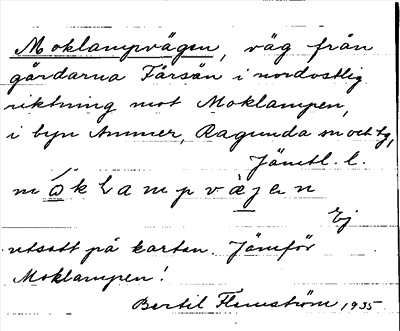 Moklampvägen, väg från
gårdarna Färsån i nordostlig
riktning mot Moklampen,
i byn Ammer, Ragunda sn och tg,
Jämtl. l.
Ej
utsatt på kartan. Jämför
Moklampen!
Bertil Flemström 1935